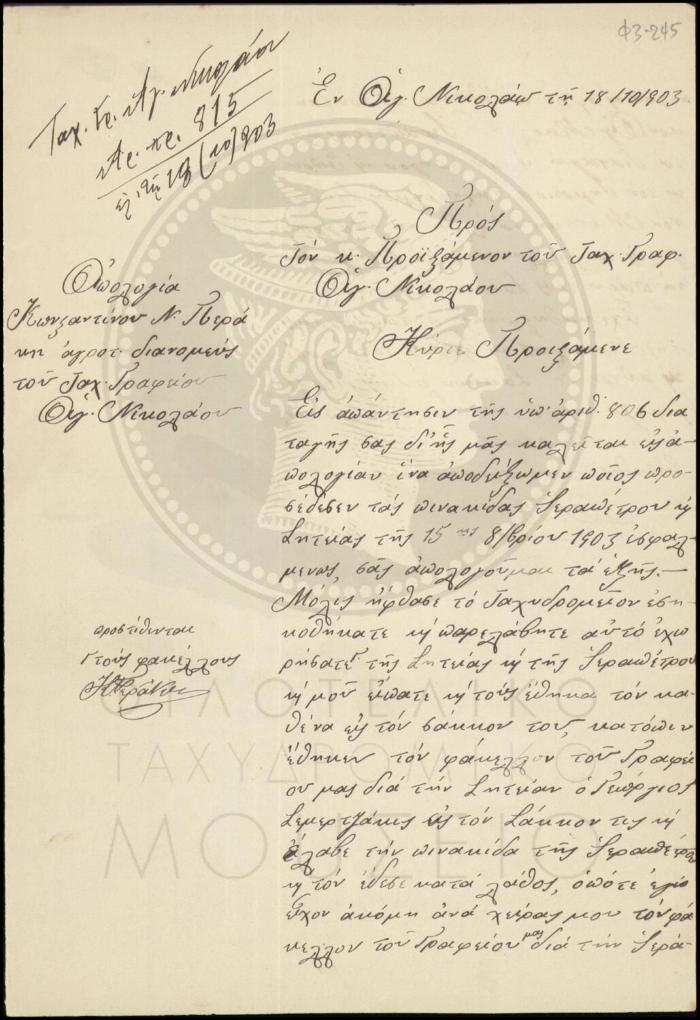 Φ3-245
Ταχ. Γρ. Αγ. Νικολάου
Αρ. πρ. 815
τῇ 18/10/903
Ἐν Ἁγ. Νικολάῳ τῇ 18/10/903
Πρός
Τόν κ. Προϊστάμενον τοῦ Ταχ. Γραφ.
Ἁγ. Νικολάου
Ἀπολογία
Κωνσταντίνου Ν. Περά
κη ἀγροτ. διανομεύς
τοῦ Ταχ. Γραφείου
Ἁγ. Νικολάου
Κύριε Προϊστάμενε
Εἰς ἀπάντησιν τῆς ὑπ' ἀριθ. 806 δια
ταγῆς σας δι' ἧς μᾶς καλεῖται εἰς ἀ-
πολογίαν ἵνα ἀποδείξωμεν ποῖος προ-
σέδεσεν τάς πινακίδας Ἱεραπέτρου κ
Σητείας τῆς 15ης 8/βρίου 1903 ἐσφαλ-
μενως, σᾶς ἀπολογοῦμαι τά ἑξῆς.—
Μόλις ἤφθασε τό Ταχυδρομεῖον ἐση-
κοθήκατε κ παρελάβητε αὐτό ἐχω
ρήσατε τῆς Σητείας κ τῆς Ἱεραπέτρου
κ μοῦ εἴπατε κ τούς ἔθηκα τόν κα-
θένα εἰς τόν σάκκον του, κατόπιν
ἔθηκεν τόν φάκελλον τοῦ Γραφεί
ου μας διά τήν Σητείαν ὁ Γεώργιος
Σεμερτζάκις εἰς τόν Σάκκον της κ
ἔλαβε τήν πινακίδα τῆς Ἱεραπέτρου
κ τόν ἔδεσε κατά λάθος, ὁπότε ἐγώ
εἶχον ἀκόμη ἀνά χεῖρας μου τόν φά
κελλον τοῦ Γραφείου μας διά τήν Ἱερά-
προστίθενται
τούς φακέλλους
ΚΠεράκης
ΦΙΛΟΤΕΛΙΚΟ
ΤΑΧΥΔΡΟΜΙΚΟ
ΜΟΥΣΕΙΟ